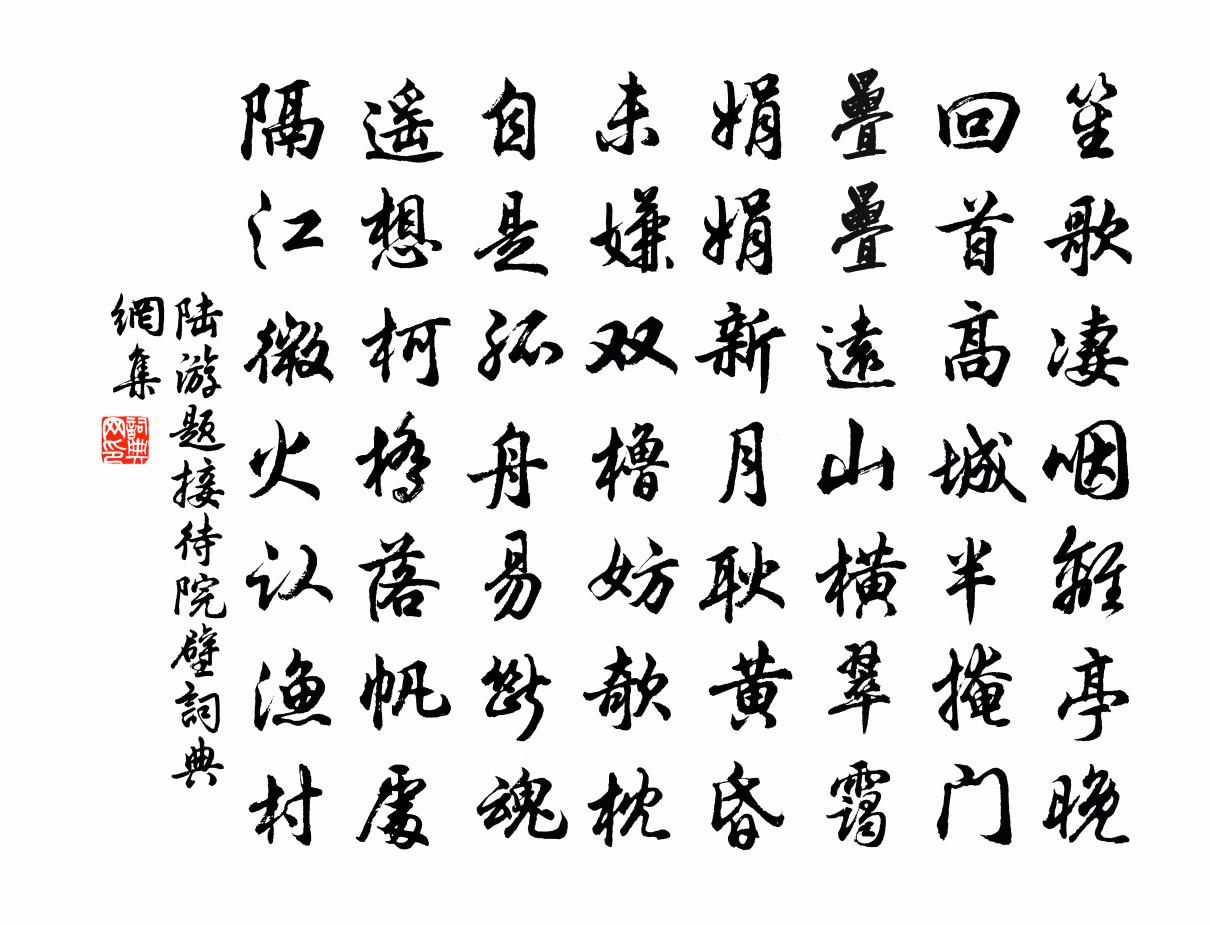 笙歌凄咽離亭晚
回首高城半掩门
疊疊遠山横翠靄
娟娟新月耿黄昏
未嫌双櫓妨欹枕
自是孤舟易斷魂
遥想柯橋落帆處
隔江微火认渔村
陆游题接待院壁詞典
網集
詞典
网印